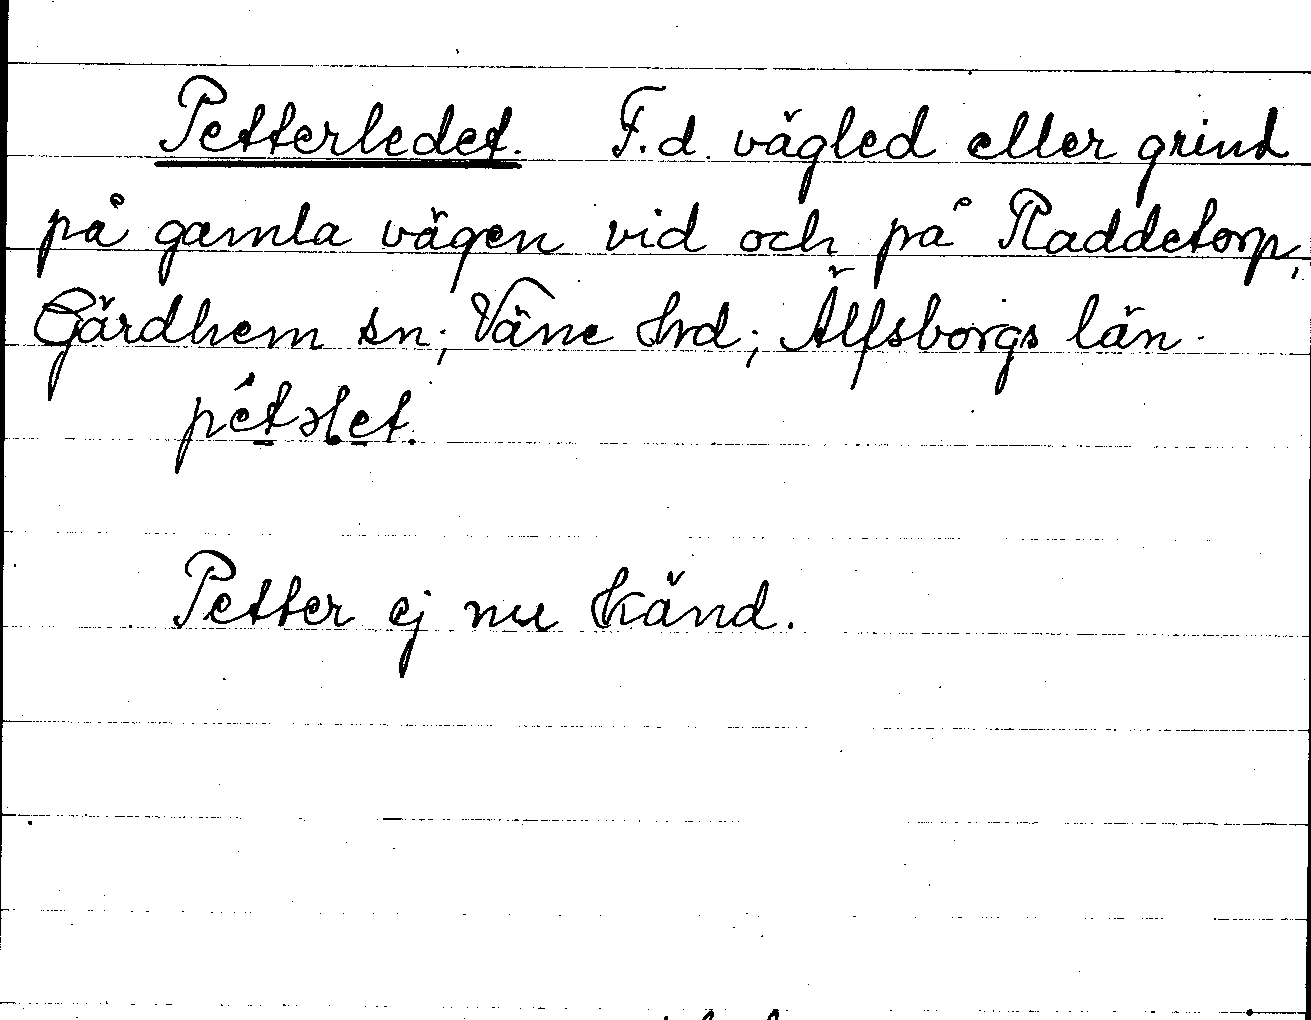 Petterledet. F.d. vägled eller grind
på gamla vägen vid och på Raddetorp,
Gärdhem sn; Väne hrd; Älfsborgs län.
Petter ej nu känd.